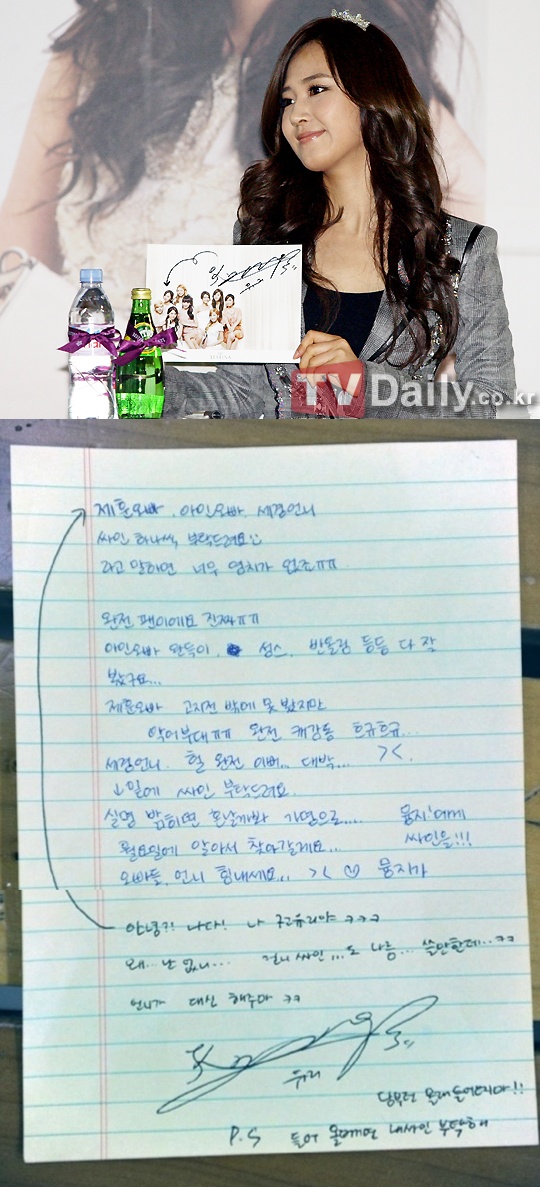 유리
TVDaily.co.kr
제훈오빠, 아인오빠, 세경언니
싸인 하나씩, 부탁드려요
라고 말하면 너무 염치가 없죠ㅠㅠ
완전 팬이에요 진짜ㅠㅠ
아인오빠 완득이, 성스, 반올림 등등 다 잘
봤구요...
제훈오빠 고지전 밖에 못 봤지만
악어부대ㅠㅠ 완전 캐감동 흐규흐규..
세경언니. 헐 완전 이뻐... 대박... ><
↓밑에 싸인 부탁드려요.
실명 밝히면 혼날까봐 가명으로.... 뭉지'에게
월요일에 알아서 찾아갈게요... 싸인을!!!
오빠들, 언니 힘내세요... >< ♡ 뭉지가
안녕?! 나다! 나 권유리야 ㅋㅋㅋ
왜... 난 없니... 싸인...도 나름... 쓸만할테...ㅋㅋ
언니가 대신 해주마 ㅋㅋ
유리
P.S 내싸인 부탁해